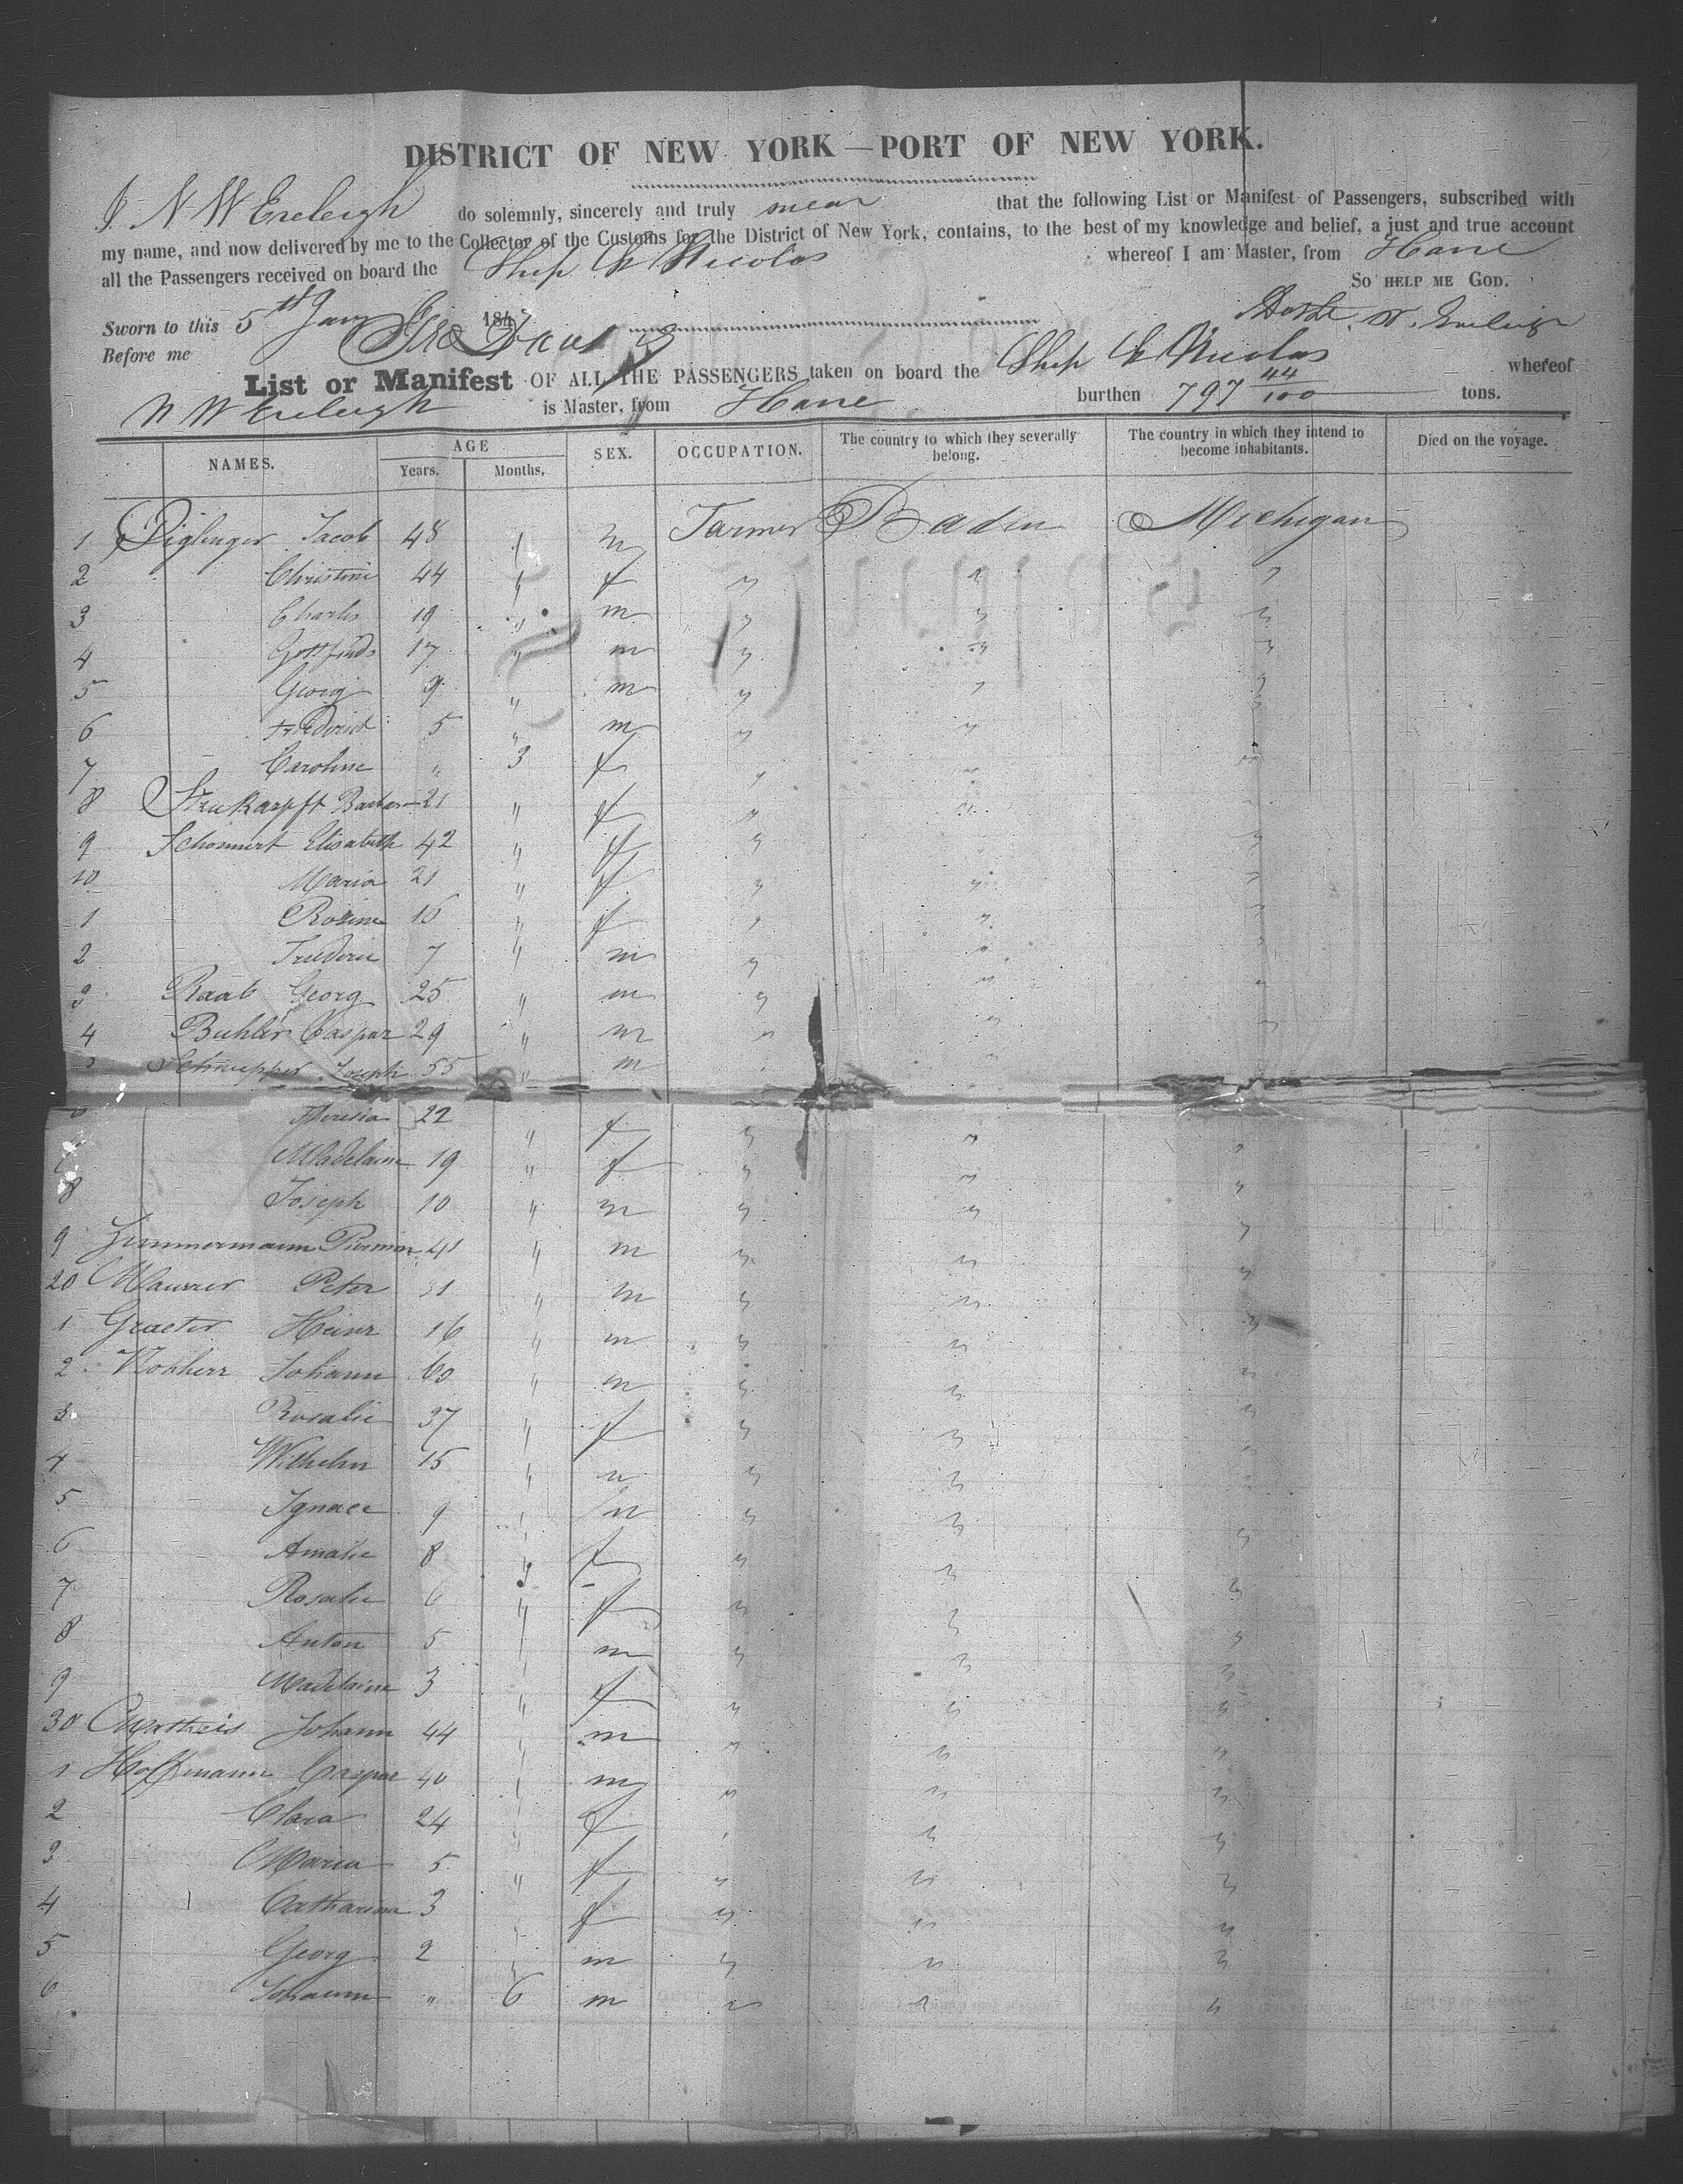 DISTRICT OF NEW YORK — PORT OF NEW YORK.
I N W Eveleigh do solemnly, sincerely and truly swear that the following List or Manifest of Passengers, subscribed with
my name, and now delivered by me to the Collector of the Customs for the District of New York, contains, to the best of my knowledge and belief, a just and true account
all the Passengers received on board the Ship St Nicolas whereof I am Master, from Havre
SO HELP ME GOD.
Sworn to this 5th Jany 184
Before me
List or Manifest OF ALL THE PASSENGERS taken on board the Ship St Nicolas whereof
N W Eveleigh is Master, from Havre burthen 797 44/100 tons.
NAMES. AGE Years. Months, SEX. OCCUPATION. The country to which they severally belong. The country in which they intend to become inhabitants. Died on the voyage.
1 Diglinger Jacob 48 " m Farmer Baden Michigan
2 Christine 44 " f " " "
3 Charles 19 " m " " "
4 17 " m " " "
5 Georg 9 " m " " "
6 Frederick 5 " m " " "
7 Caroline " 3 f " " "
8 21 " f " "
9 Elisabeth 42 " f " "
10 Maria 21 " f " " "
1 Rosine 16 " f " " "
2 7 " m " " "
3 Raab Georg 25 " m " " "
4 Buhler Caspar 29 " m " " "
5 Schnepper Joseph 55 " m "
6 Theresia 22 " f " " "
7 Madelaine 19 " f " " "
8 Joseph 10 " m " " "
9 Zimmermann 41 " m " " "
20 Maurer Peter 31 " m " " "
1 Graeter Heinr 16 " m " " "
2 Johann 60 " m " " "
3 Rosalie 37 " f " " "
4 Wilhelm 15 " m " "
5 Ignace 9 " m " " "
6 Amalie 8 " f " " "
7 Rosalie 6 " f " " "
8 Anton 5 " m " " "
9 Madelaine 3 " f " " "
30 Johann 44 " m " " "
1 Hoffmann Caspar 40 " m " " "
2 Clara 24 " f " " "
3 Maria 5 " f " " "
4 Catharina 3 f " " "
5 Georg 2 " m " " "
6 Johann " 6 m " " "